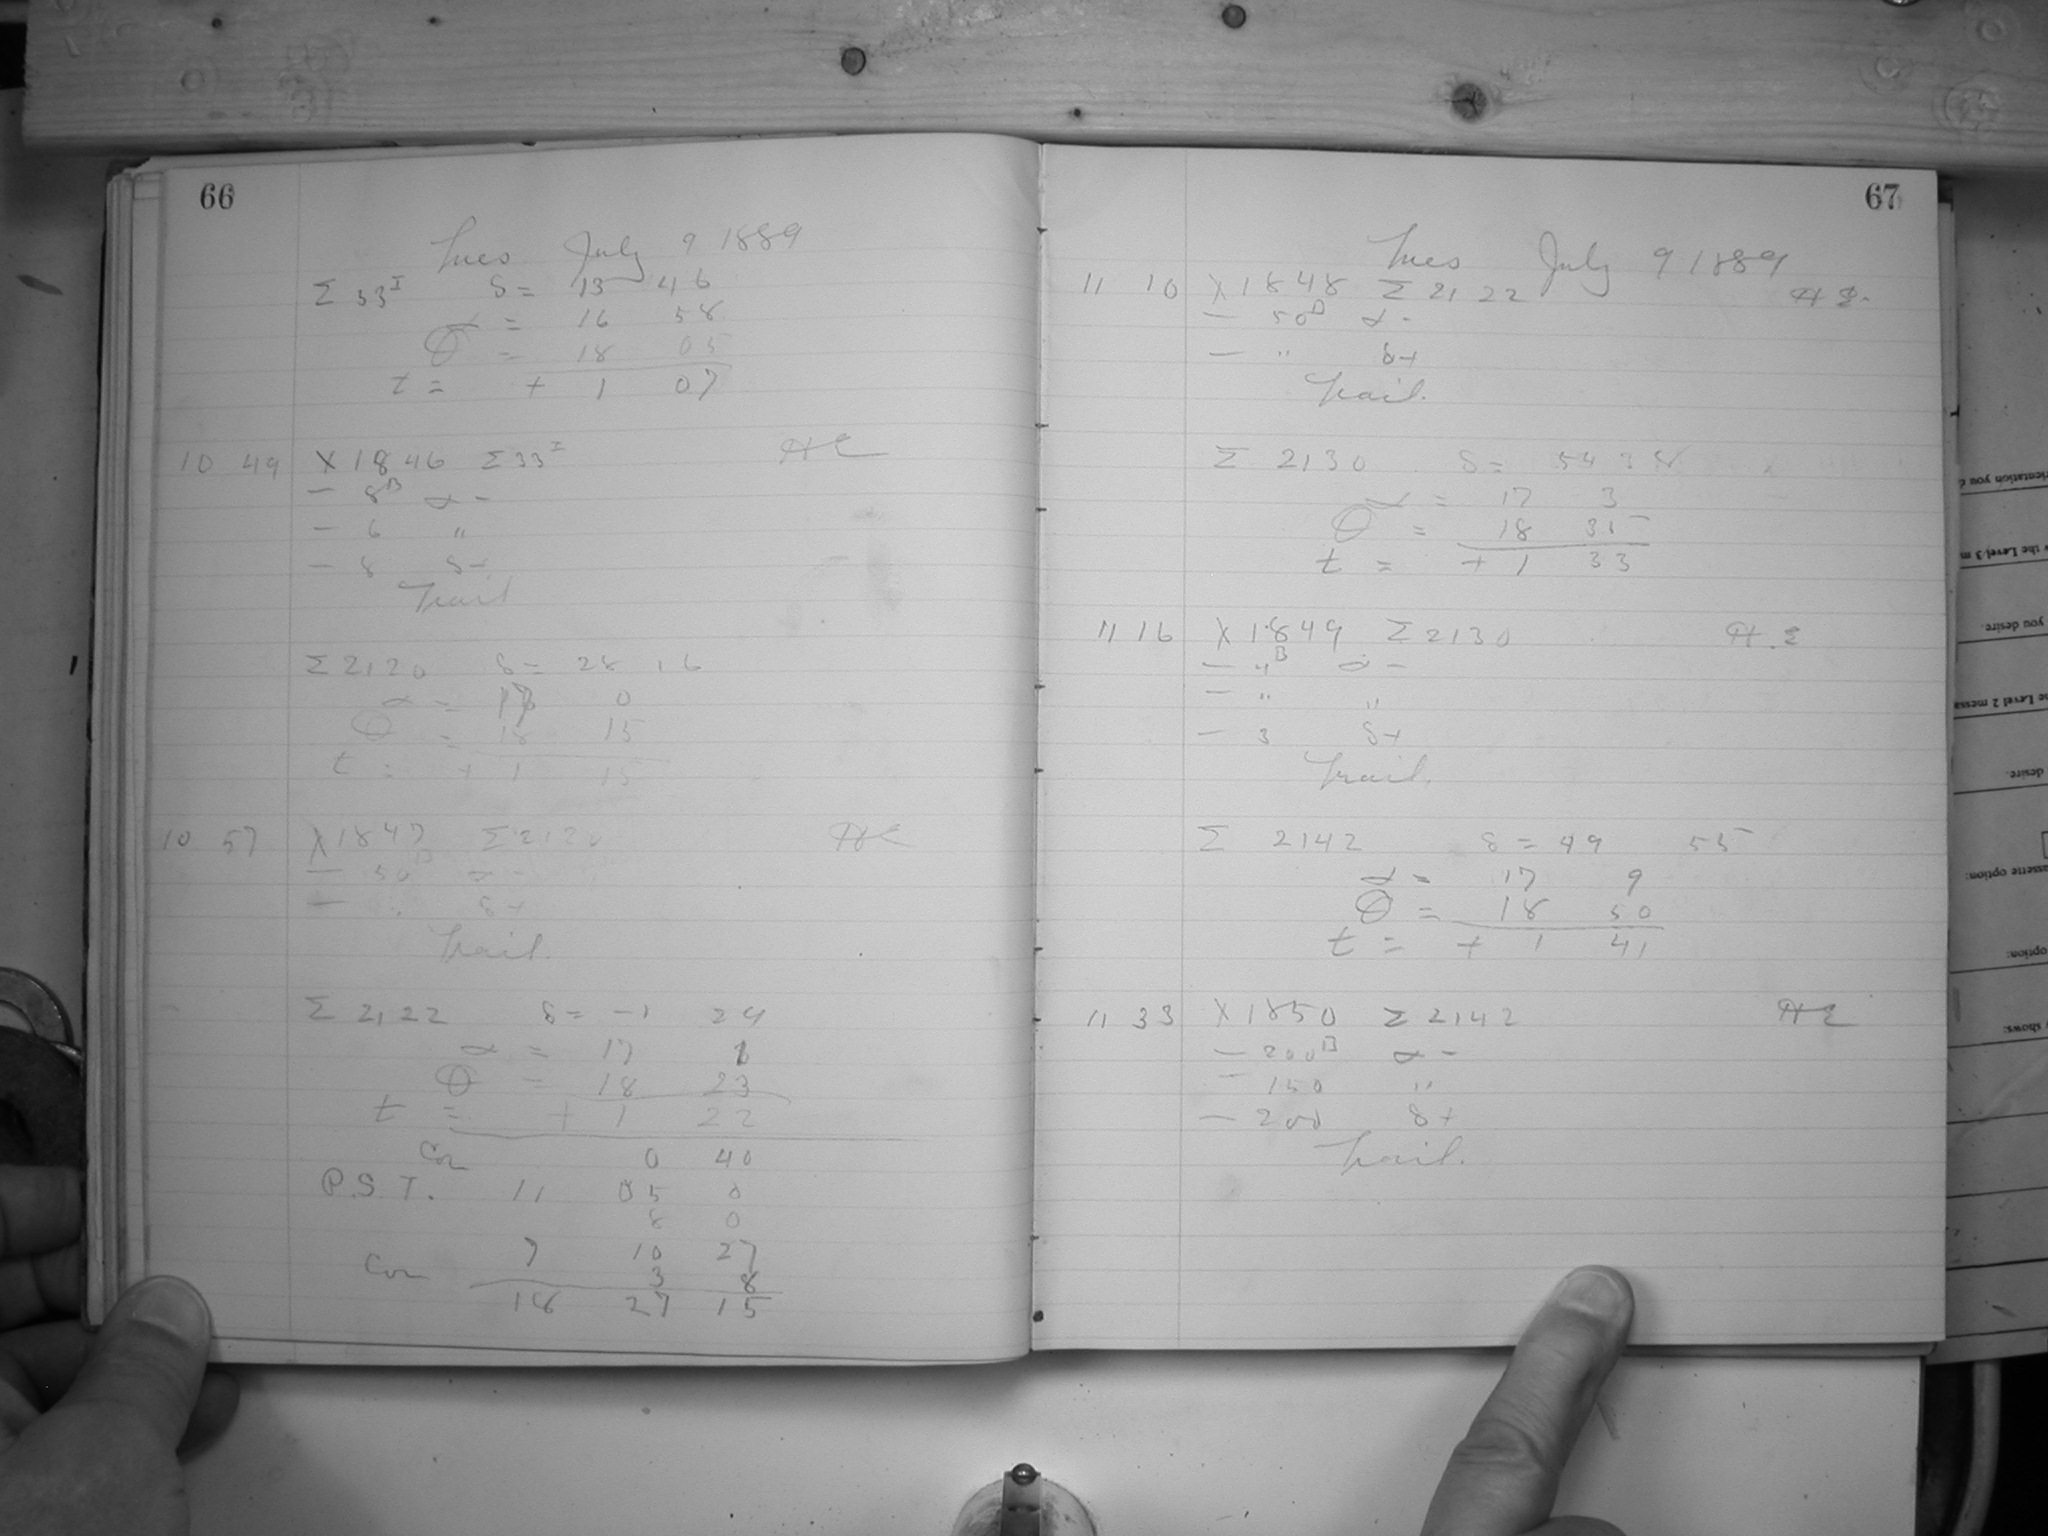 66
Tues July 9 1889
Σ 33^I δ = 13 46
α = 16 58
θ = 18 05
t = + 1 07
10 49 X 1846 Σ 33^I
— 8^B α -
— 6 "
— 8 δ+
Trail
Σ 2120 δ = 28 16
α = 17 0
θ = 18 15
t = + 1 15
10 57 X 1847 Σ 2120
— 50^B α -
— " δ+
Trail.
Σ 2122 δ = -1 29
α = 17 1
θ = 18 23
t = + 1 22
Cor 0 40
P.S.T. 11 05 0
8 0
7 10 27
Cor 3 8
18 27 15
67
Tues July 9 1889
11 10 X 1848 Σ 2122
— 50^B α -
— " δ+
Trail.
Σ 2130 δ = 54 38
α = 17 3
θ = 18 35
t = + 1 33
11 16 X 1849 Σ 2130
— 4^B α -
— " "
— 3 δ+
Trail.
Σ 2142 δ = 49 55
α = 17 9
θ = 18 50
t = + 1 41
11 33 X 1850 Σ 2142
— 200^B α -
— 150 "
— 200 δ+
Trail.